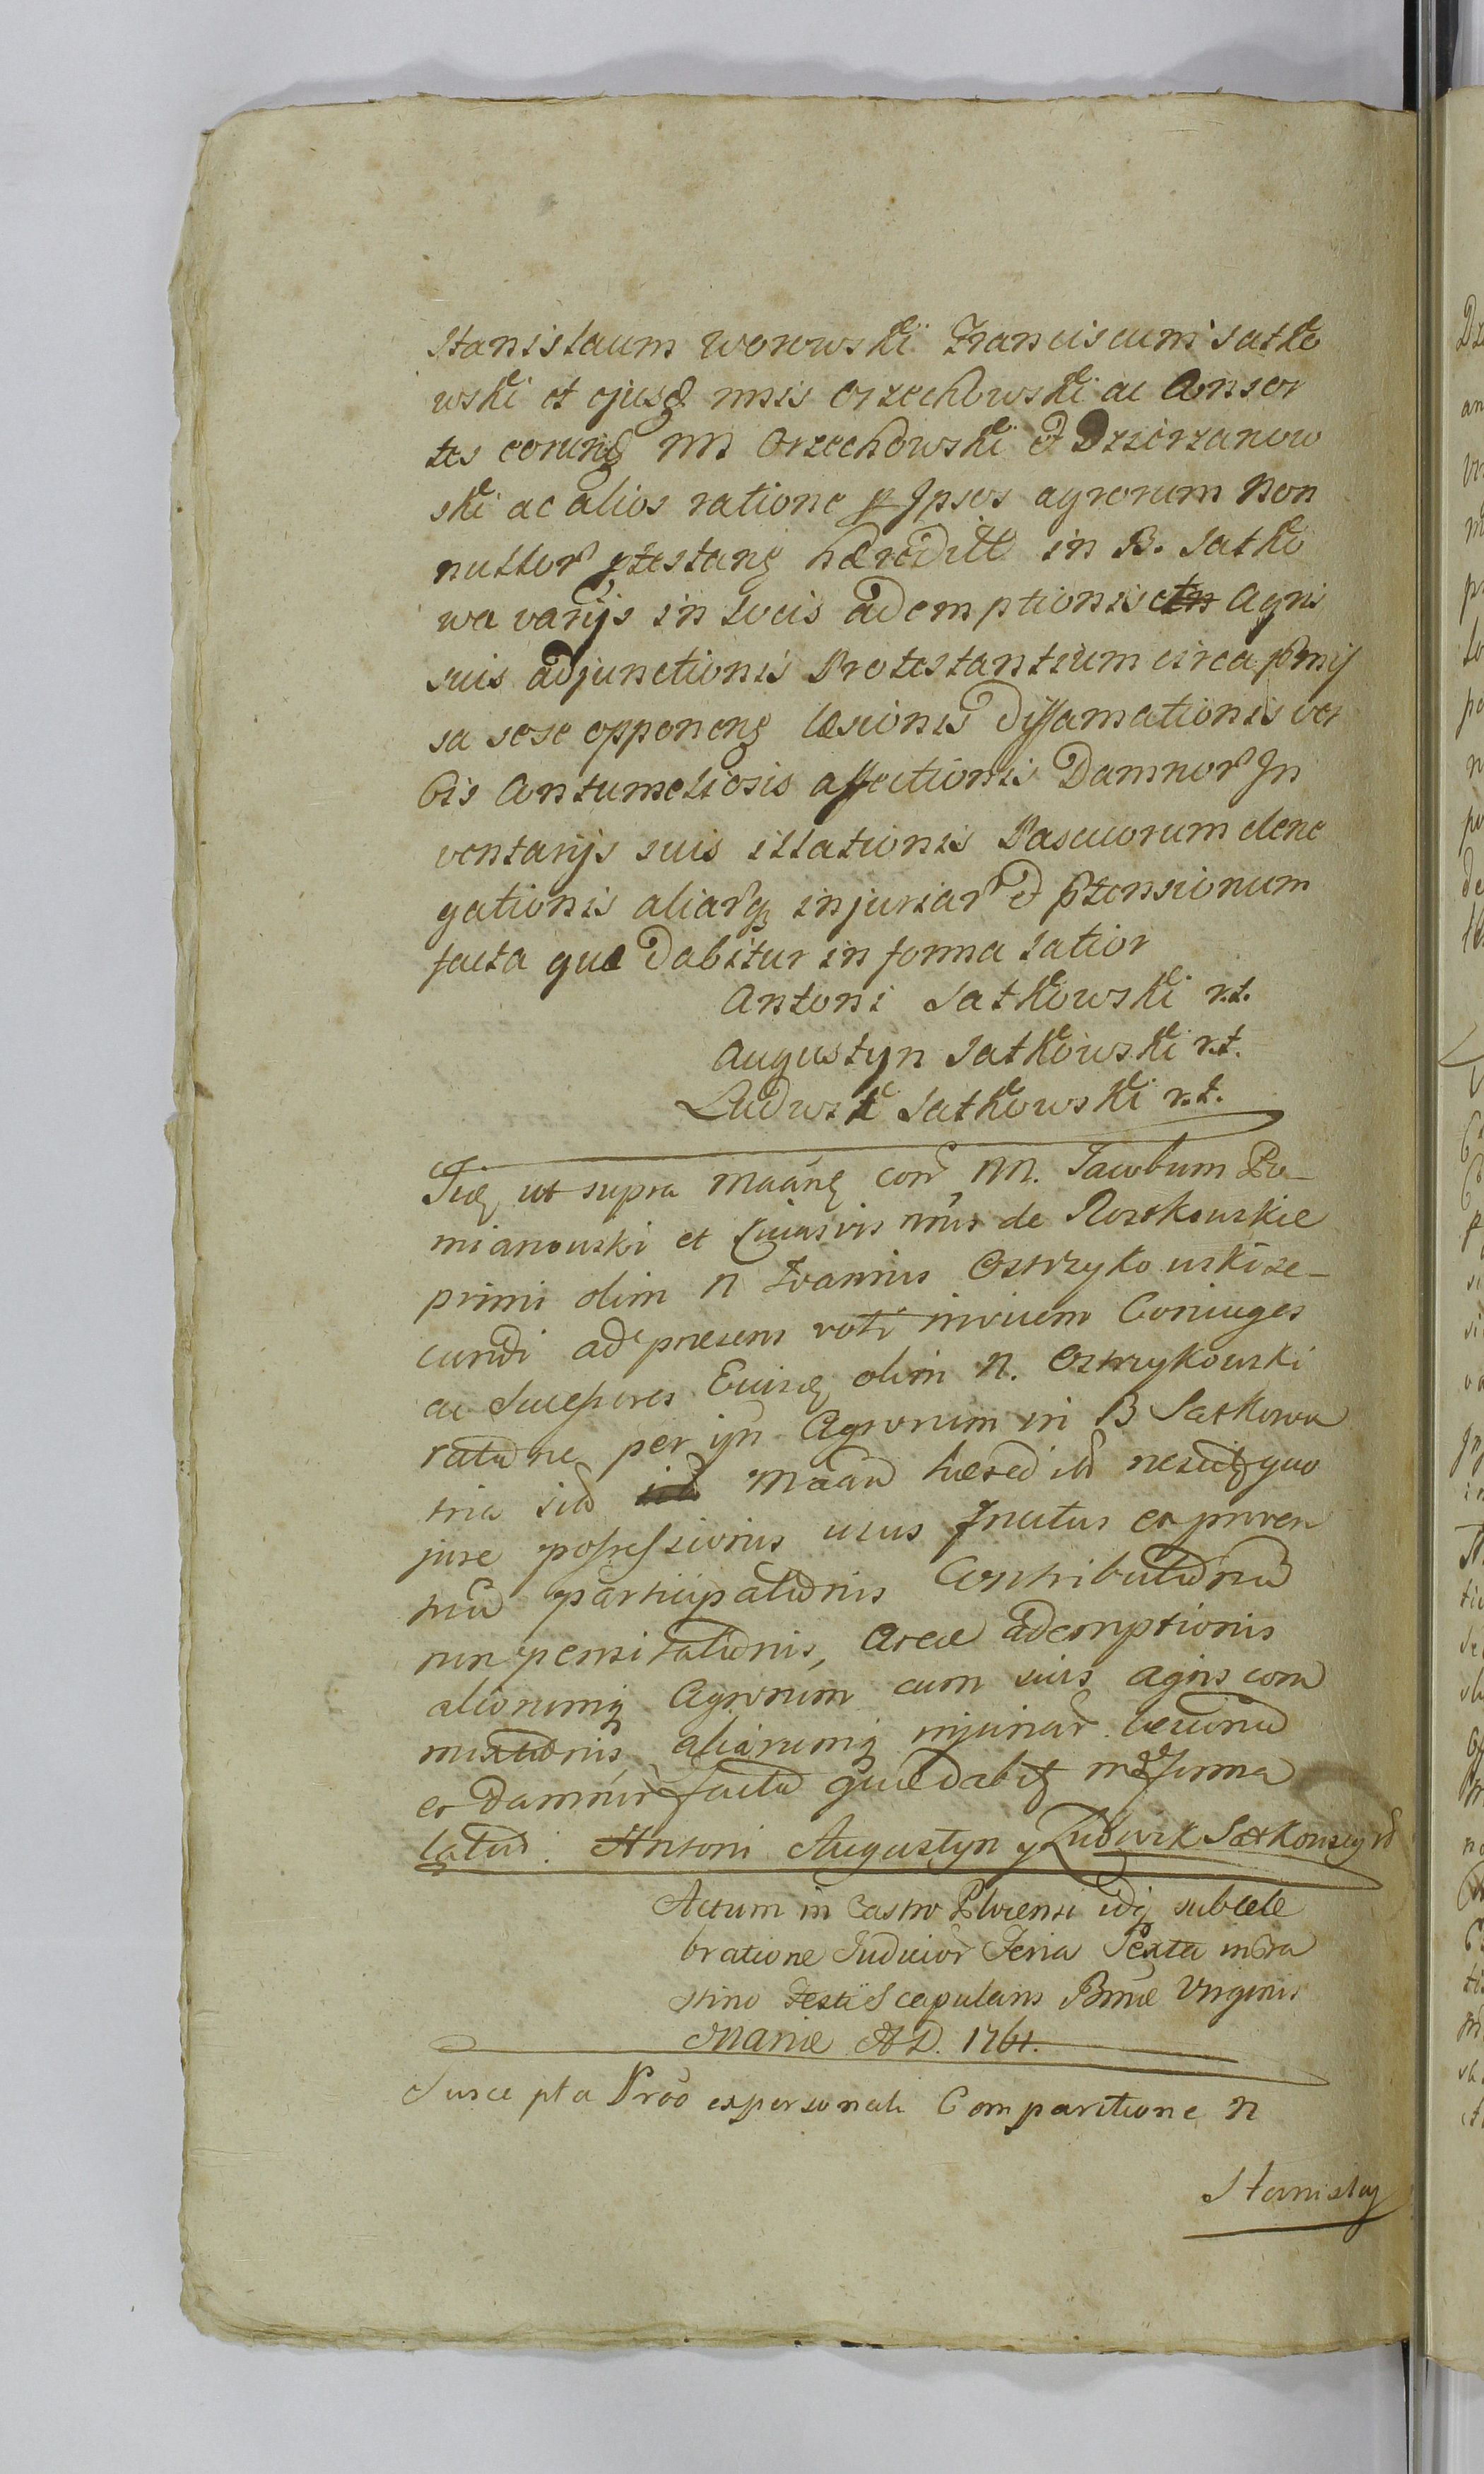 Stanislaum Worowski Franciscum Satko
wski et ejusq msis Orzechowski ac Consor
tes eorumq NN Orzechowski et Dzierzanow
ski ac alios ratione p Ipsos agrorum Non
nullor ptestang hæreditt in B. Satko
wa varijs in Locis ademptionis etn Agris
suis adjunctionis Protestantium circa pmis
sa sese opponeng læsionis diffamationis ver
bis Contumeliosis affectionis Damnor In
ventarijs suis illationis Pascuorum dene
gationis aliarq injuriar et ptensionum
facta quæ dabitur in forma latior
Antoni Satkowski r.t.
Augustyn Satkowski r.t.
Ludwik Satkowski r.t.
Iidq ut supra Maanq con NN. Jacobum Po-
mianowski et Cuiusvis mus de Roszkowskie
primi olim N Joannis Ostrzykowski se-
cundi ad præsens voti invicem Coniuges
ac Successores Eiusq olim N. Ostrzykowski
ratione per ipn Agrorum in B Satkowa
tria sid Maan hæred itt nescitq quo
jure possessionis usus fructus et proven
tuu participationis Contributionu
non pensitationis, Areæ ademptionis
aliorumq Agrorum cum suis agris com
mixtionis, aliarumq injuriar læsionu
et Damnor facta quæ dabitq in forma
latior. Antoni Augustyn y Ludwik Satkowscy
Actum in Castro idq sub cele
bratione Judicior Feria Sexta in Cra
stino Festi Scapularis Bmæ Virginis
Mariæ A D. 1761.
Suscepta Prod ex personali Comparitione N
Stanislaj